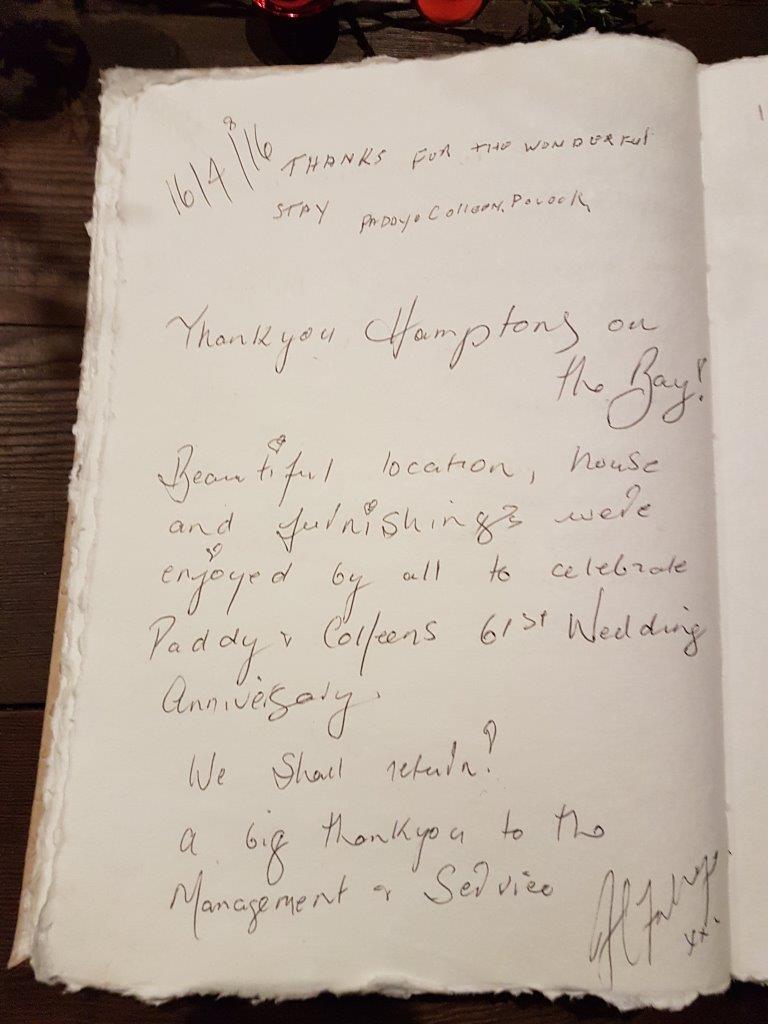 16/4/16 THANKS FOR THE WONDERFUL
STAY PADDY & COLLEEN.
Thankyou Hamptons on
the Bay!
Beautiful location, house
and furnishings were
enjoyed by all to celebrate
Paddy & Colleens 61st Wedding
Anniversary.
We Shall return!
a big thankyou to the
Management & Service
xx.